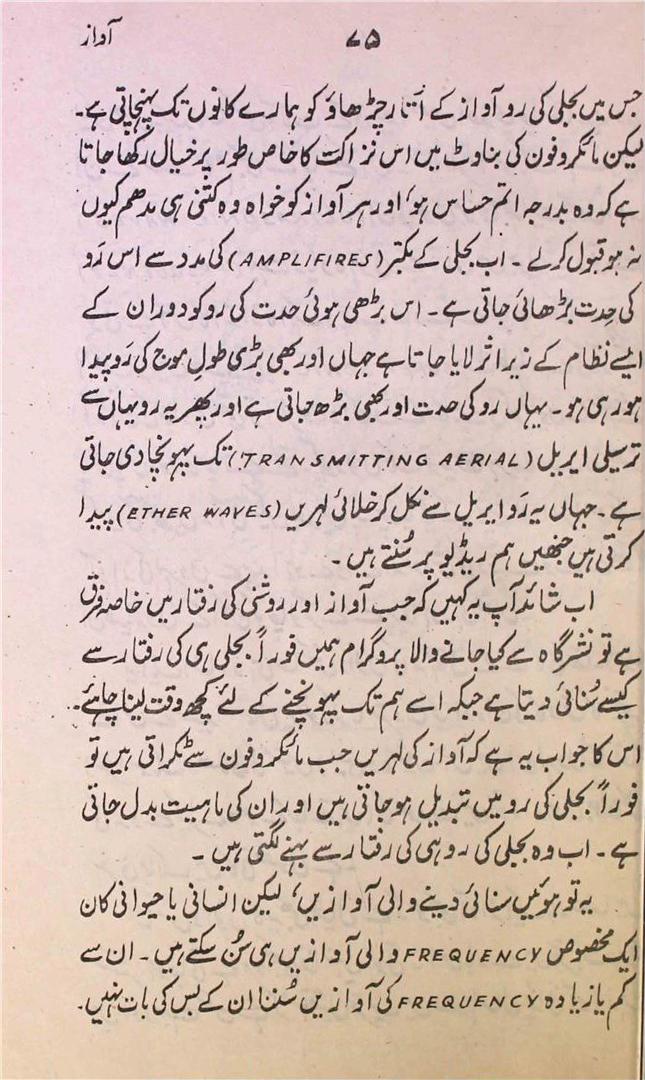 آواز
۷۵
جس میں بجلی کی رو آواز کے اُتار چڑھاؤ کو ہمارے کانوں تک پہنچاتی ہے۔
لیکن مائکروفون کی بناوٹ میں اس نزاکت کا خاص طور پر خیال رکھا جاتا
ہے کہ وہ بدرجہ اتم حساس ہو، اور ہر آواز کو خواہ وہ کتنی ہی مدھم کیوں
نہ ہو قبول کرلے۔ اب بجلی کے مکبّر (AMPLIFIRES) کی مدد سے اس رَو
کی حِدت بڑھائی جاتی ہے۔ اس بڑھی ہوئی حدت کی رو کو دوران کے
ایسے نظام کے زیر اثر لایا جاتا ہے جہاں اور بھی بڑی طولِ موج کی رَو پیدا
ہو رہی ہو۔ یہاں رو کی حدت اور بھی بڑھ جاتی ہے اور پھر یہ رو یہاں سے
ترسیلی ایریل (TRANSMITTING AERIAL) تک پہونچا دی جاتی
ہے۔ جہاں یہ رَو ایریل سے نکل کر خلائی لہریں (ETHER WAVES) پیدا
کرتی ہیں جنھیں ہم ریڈیو پر سُنتے ہیں۔
اب شائد آپ یہ کہیں کہ جب آواز اور روشنی کی رفتار میں خاصہ فرق
ہے تو نشرگاہ سے کیا جانے والا پروگرام ہمیں فوراً بجلی ہی کی رفتار سے
کیسے سُنائی دیتا ہے جبکہ اسے ہم تک پہونچنے کے لئے کچھ وقت لینا چاہئے۔
اس کا جواب یہ ہے کہ آواز کی لہریں جب مائکروفون سے ٹکراتی ہیں تو
فوراً بجلی کی رو میں تبدیل ہو جاتی ہیں اور ان کی ماہیت بدل جاتی
ہے۔ اب وہ بجلی کی رو ہی کی رفتار سے بہنے لگتی ہیں۔
یہ تو ہوئیں سنائی دینے والی آوازیں، لیکن انسانی یا حیوانی کان
ایک مخصوص FREQUENCY والی آوازیں ہی سُن سکتے ہیں۔ ان سے
کم یا زیادہ FREQUENCY کی آوازیں سُننا ان کے بس کی بات نہیں۔